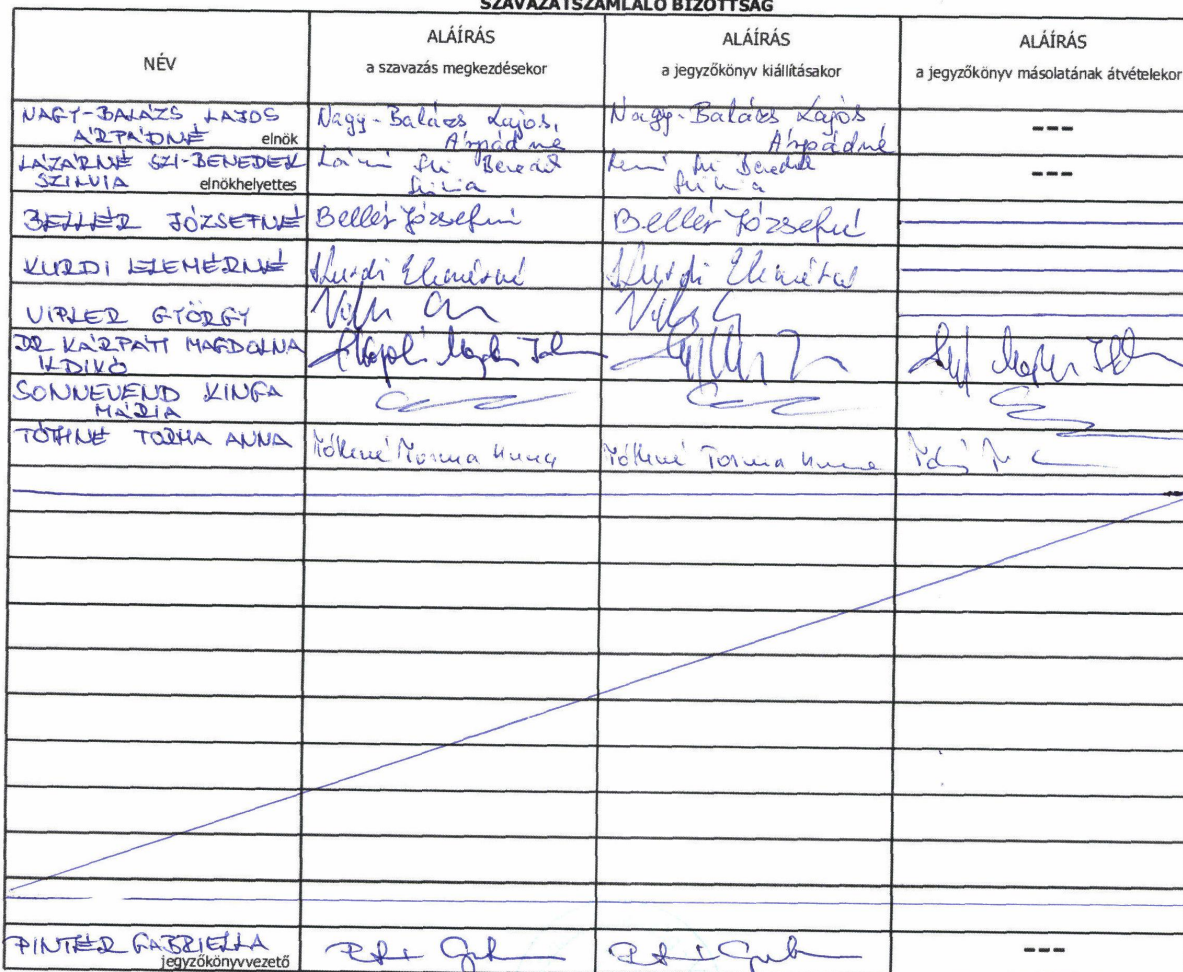 SZAVAZATSZÁMLÁLÓ BIZOTTSÁG
NÉV
ALÁÍRÁS
a szavazás megkezdésekor
ALÁÍRÁS
a jegyzőkönyv kiállításakor
ALÁÍRÁS
a jegyzőkönyv másolatának átvételekor
NAGY-BALÁZS LAJOS
ÁRPÁDNÉ elnök
Nagy-Balázs Lajos,
Árpádné
Nagy-Balázs Lajos,
Árpádné
---
LÁZÁRNÉ SZI-BENEDEK
SZILVIA elnökhelyettes
---
BELLÉR JÓZSEFNÉ
Bellér Józsefné
Bellér Józsefné
KURDI ELEMÉRNÉ
Kurdi Elemérné
Kurdi Elemérné
VIPLER GYÖRGY
DR KÁRPÁTI MAGDOLNA
ILDIKÓ
SONNEVEND KINGA
MÁRIA
TÓTHNÉ TORMA ANNA
Tóthné Torma Anna
Tóthné Torma Anna
PINTÉR GABRIELLA
jegyzőkönyvvezető
---